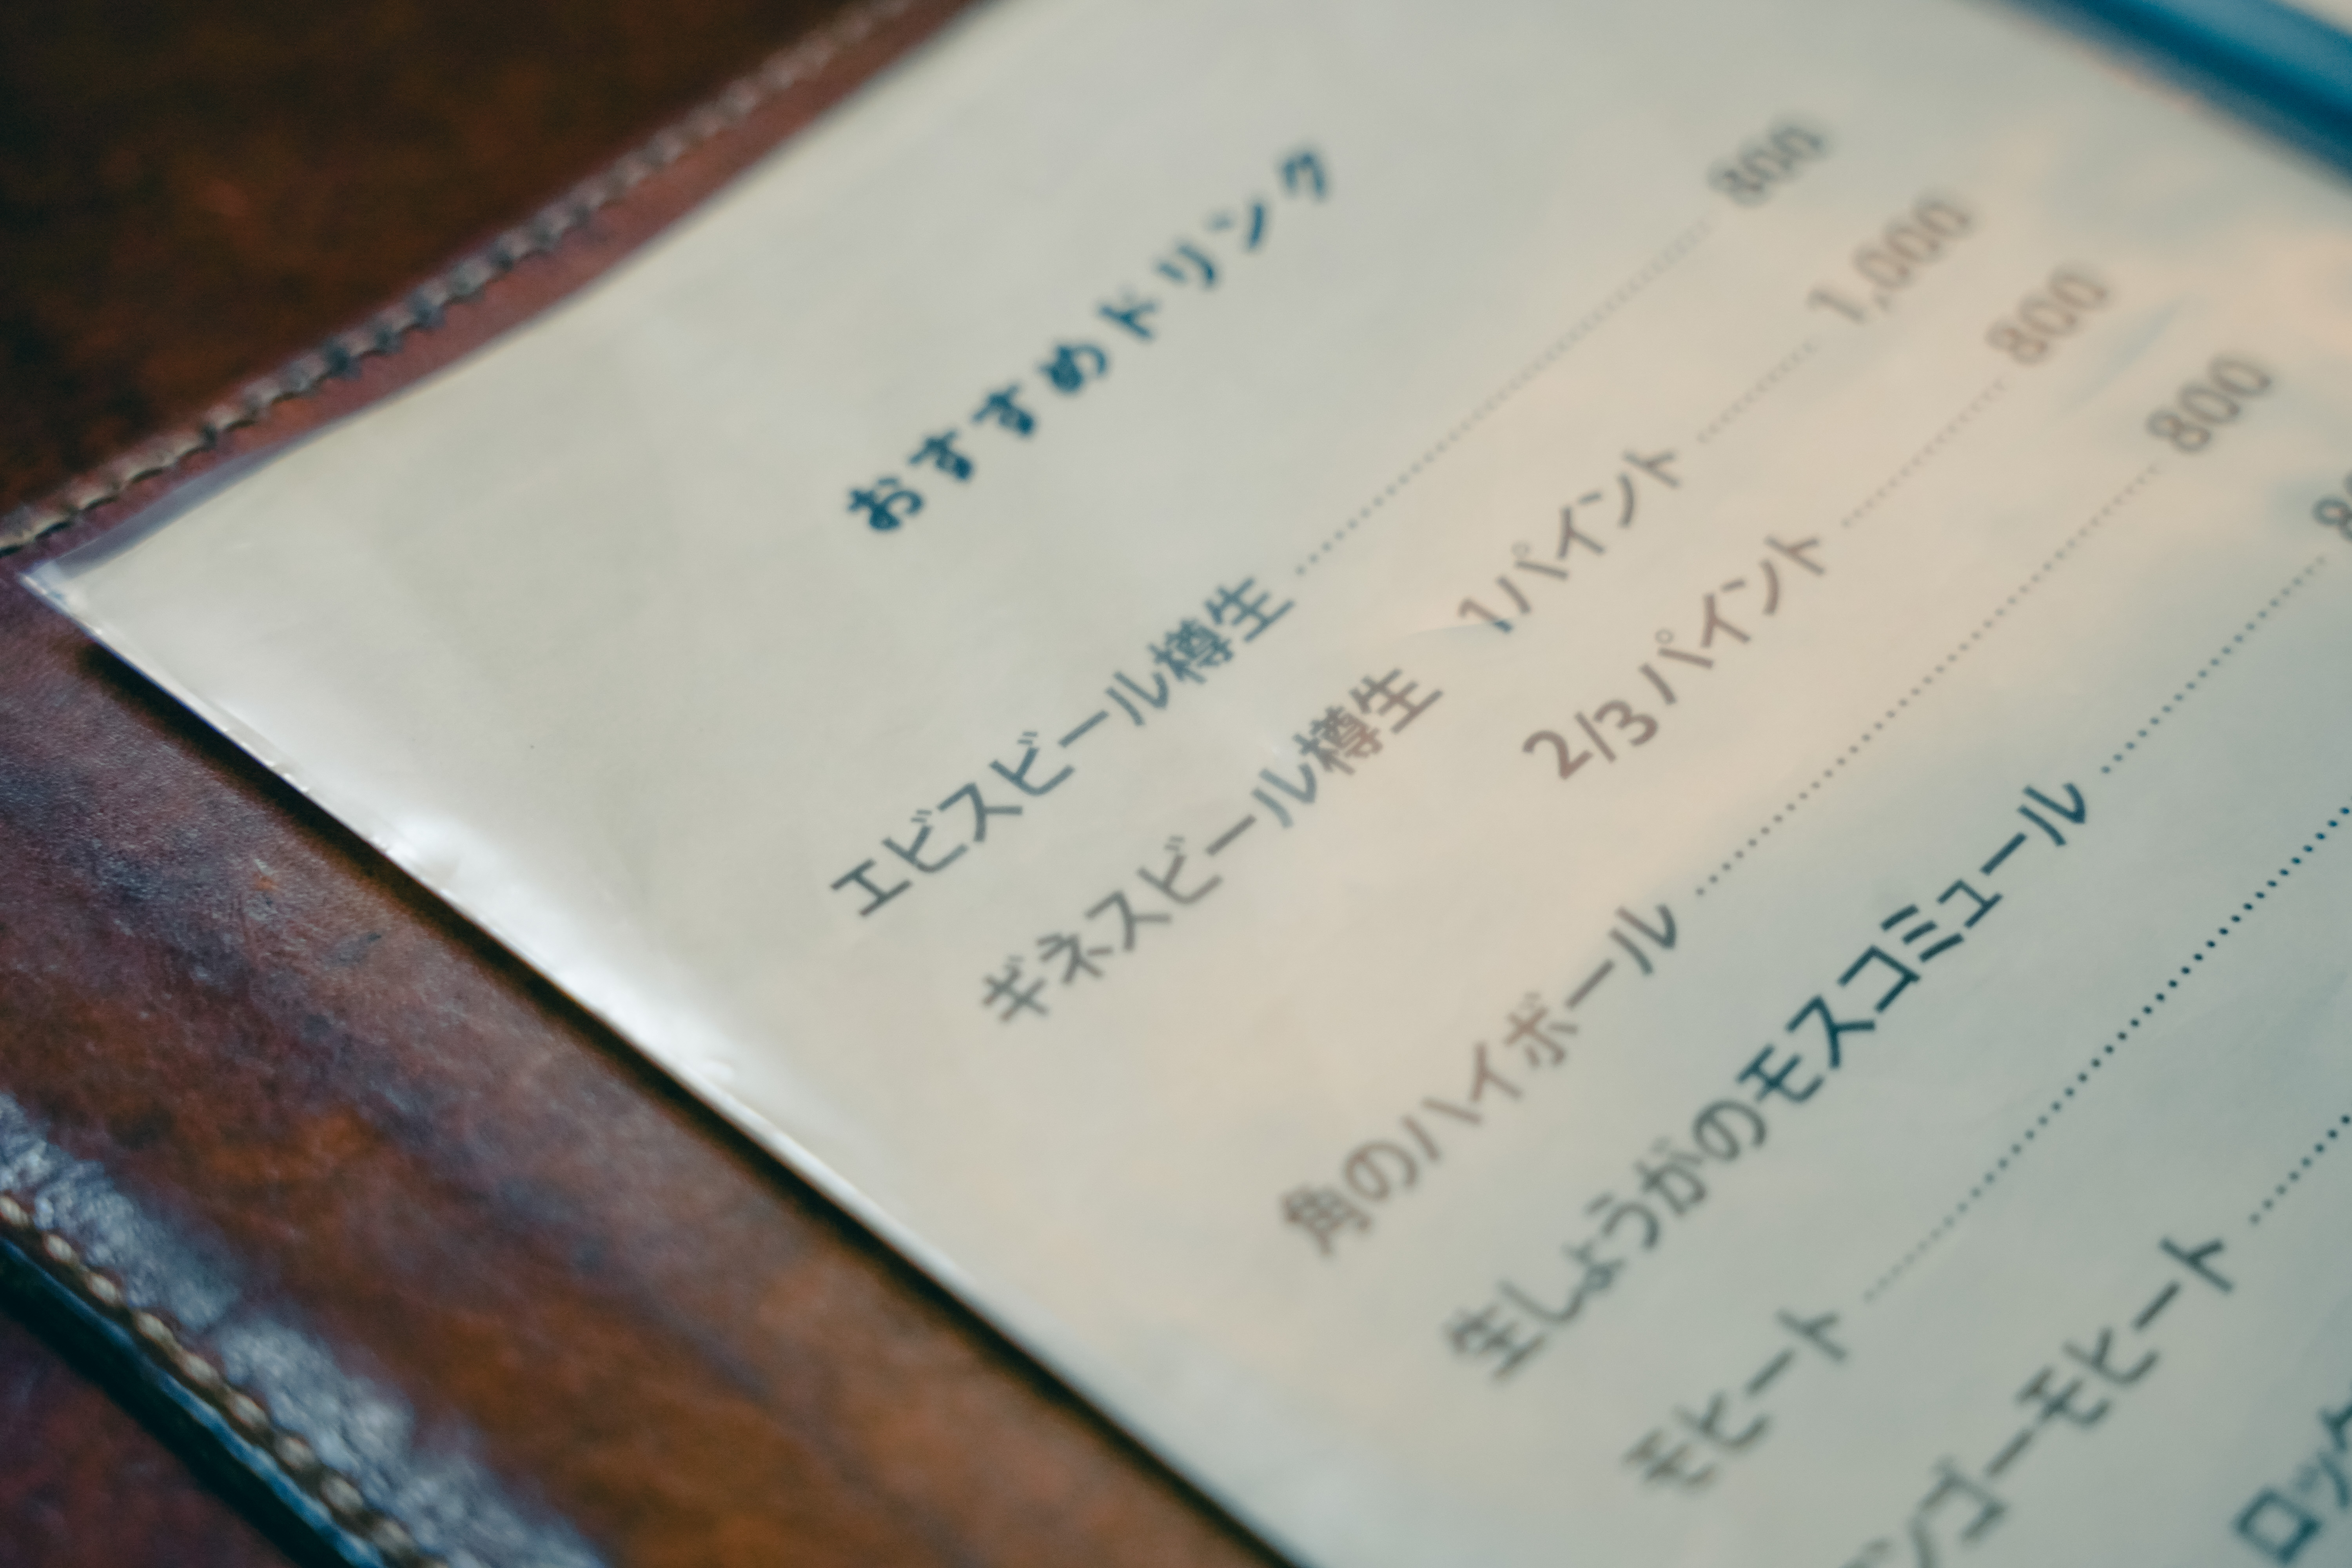 おすすめドリンク
エビスビール樽生 ………… 800
ギネスビール樽生 1パイント ………… 1,000
2/3パイント ………… 800
角のハイボール ………… 800
生しょうがのモスコミュール …………
モヒート …………
ンゴーモヒート …………
ロック